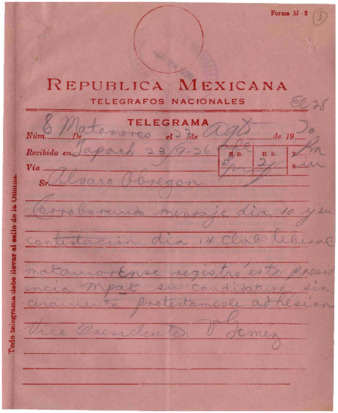 Forma 11-2
3
REPUBLICA MEXICANA
TELEGRAFOS NACIONALES
TELEGRAMA
Núm. 8 De Matamoros el 23 Agt de 19
Recibido en
Vía
Sr. Alvaro Obregon.
Corroborando mensaje dia 10 y su
contestación dia 14 Club liberal
matamorense registró esta presi
dencia Mpal su candidatura sin
ceramente protestamosle adhesion
Vice Presidente. P Gomez
Todo telegrama debe llevar el sello de la Oficina.